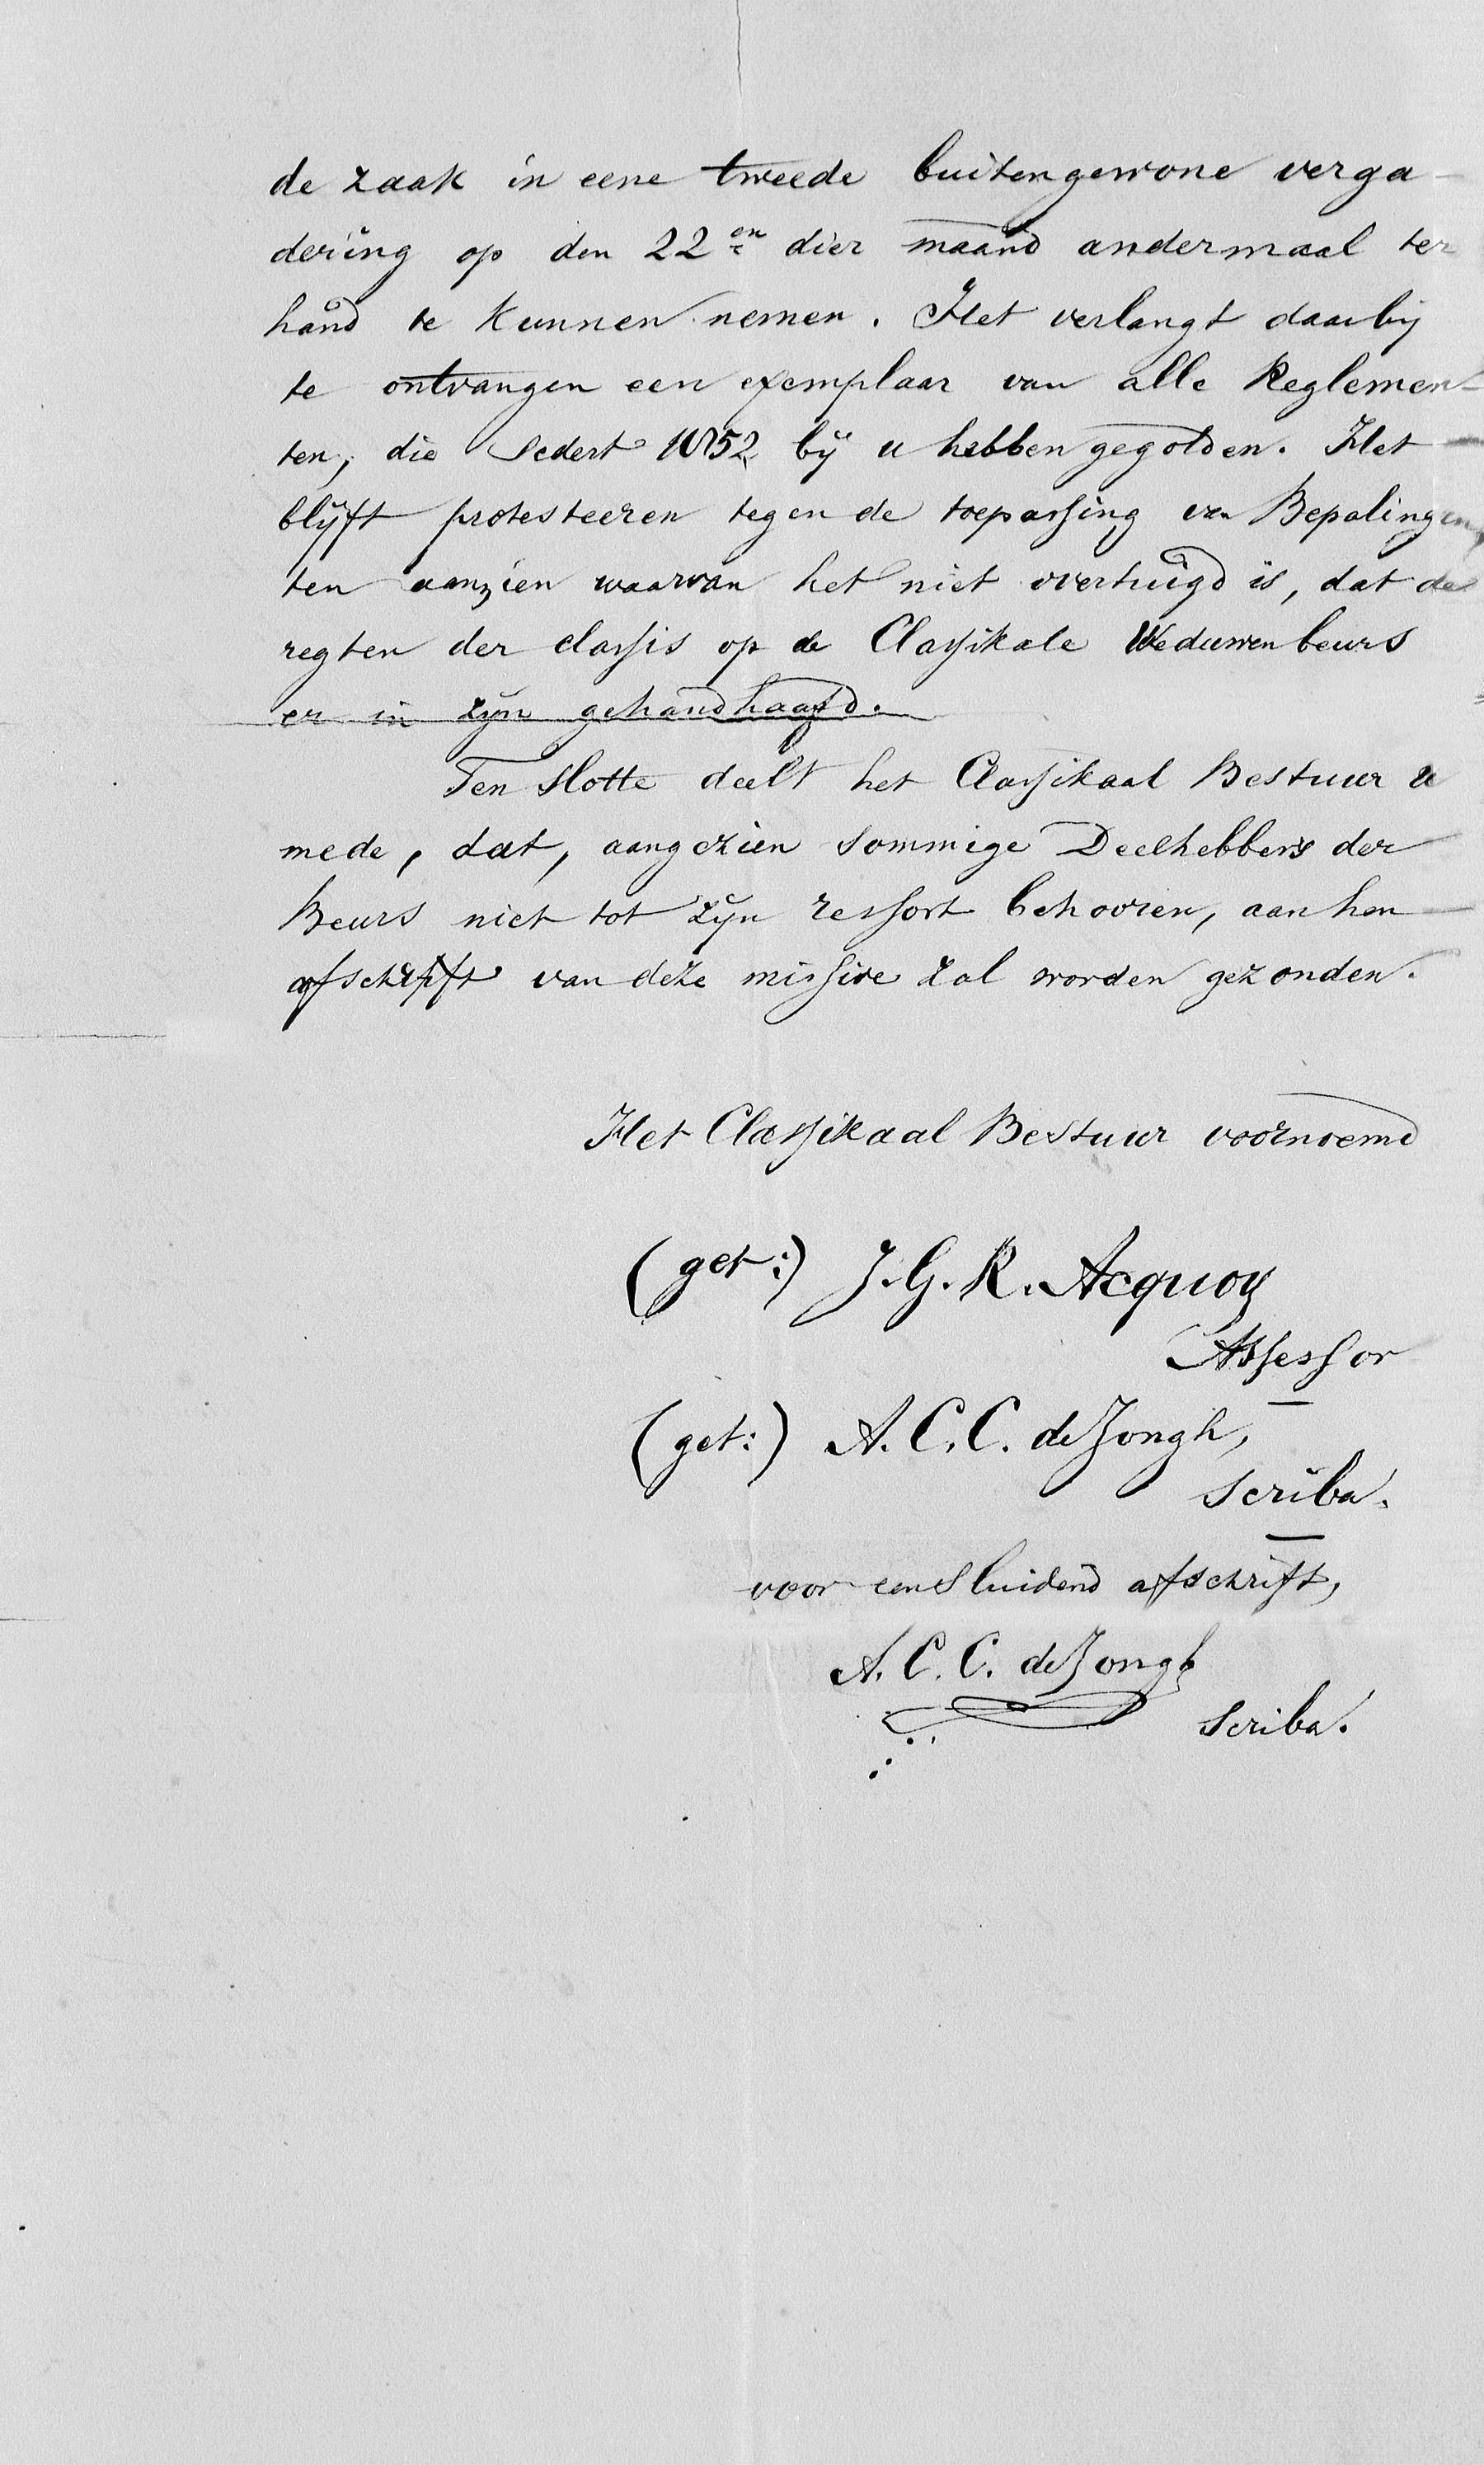 de zaak in eene tweede buitengewone verga-
dering op den 22en dier maand andermaal ter
hand te kunnen nemen. Het verlangt daarbij
te ontvangen een exemplaar van alle Reglemen-
ten, die sedert 1852 bij u hebben gegolden. Het
blijft protesteeren tegen de toepassing van Bepalingen,
ten aanzien waarvan het niet overtuigd is, dat de
regten der classis op de Classikale Weduwenbeurs
er in zijn gehandhaafd.
Ten slotte deelt het Classikaal Bestuur u
mede, dat, aangezien sommige Deelhebbers der
Beurs niet tot zijn ressort behooren, aan hen
afschrift van deze missive zal worden gezonden.
Het Classikaal Bestuur voornoemd
(get:) J. G. R. Acquoy
Assessor
(get:) A. C. C. de Jongh,
Scriba.
voor eensluidend afschrift,
A. C. C. de Jongh
Scriba.